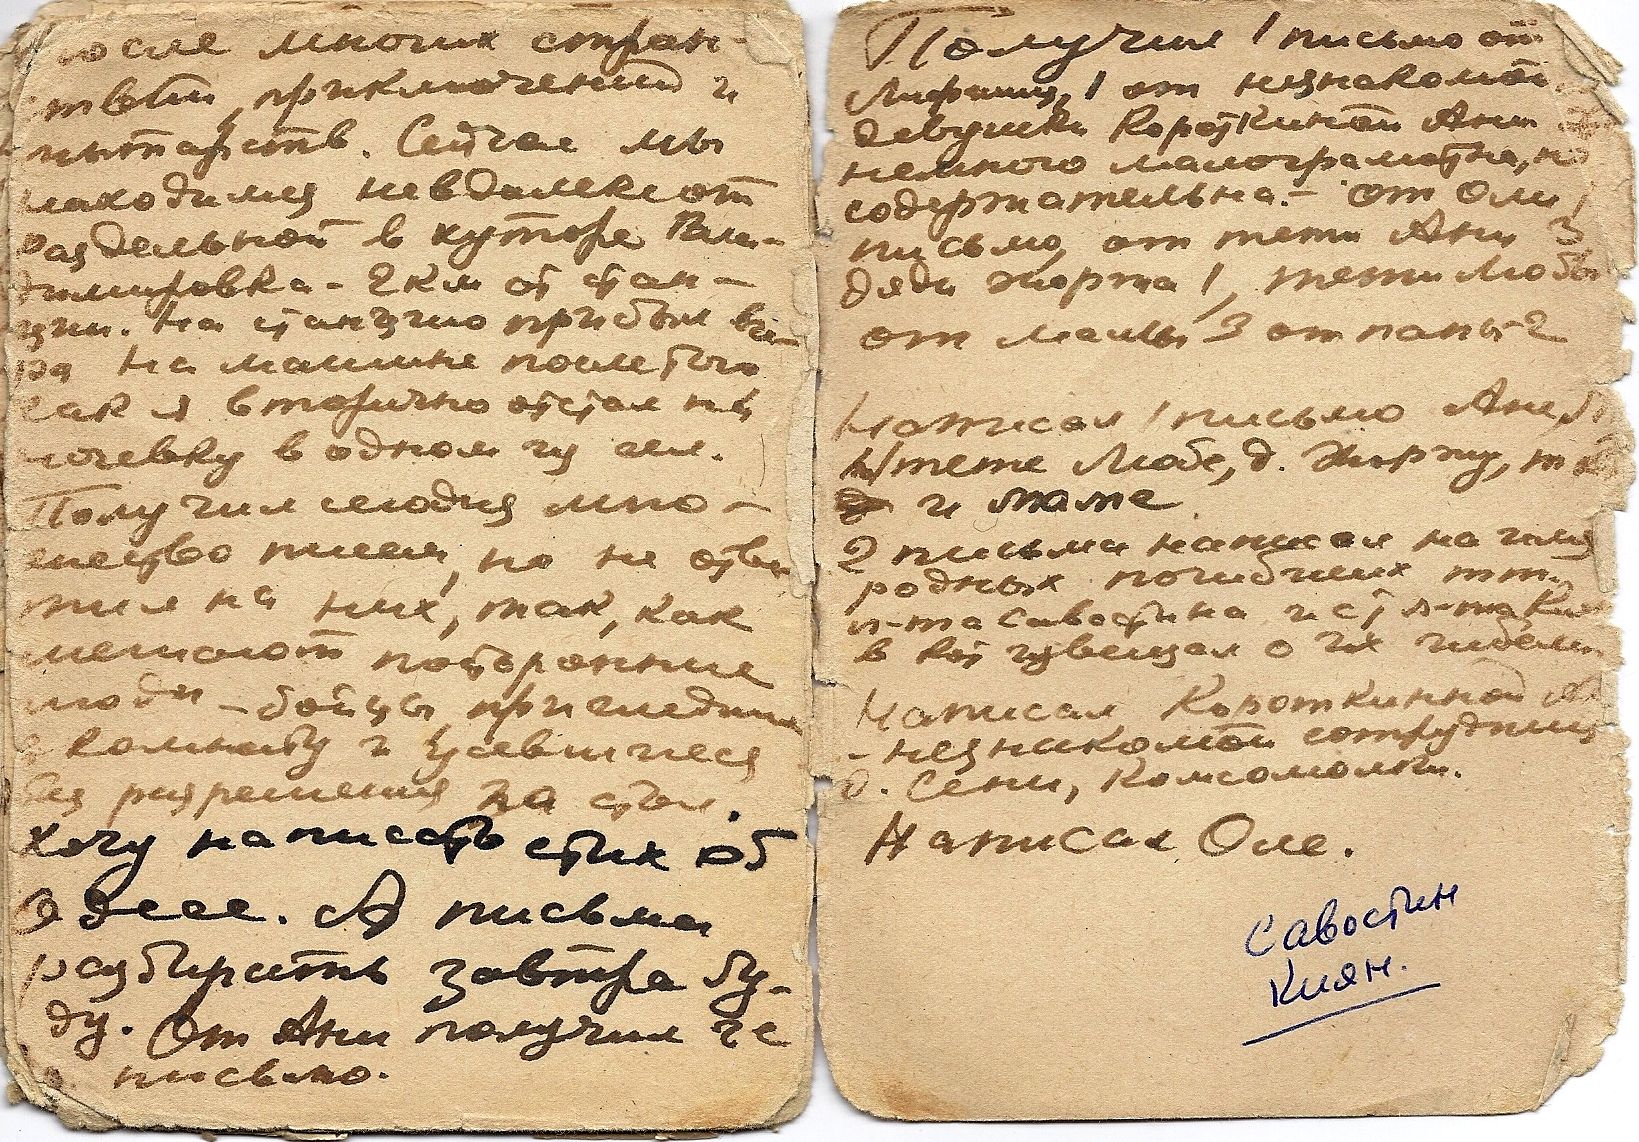 после многих стран-
ствий, приключений и
мытарств. Сейчас мы
находимся невдалеке от
Раздельной в хуторе Вла-
димировка - 2 км от стан-
ции. На станцию прибыли вче-
ра на машине после того
как я вторично отстал на
ночевку в одном из сел.
Получил сегодня мно-
жество писем, но не отве-
тил на них, так, как
мешают посторонние
люди - бойцы, пришедшие
в комнату и усевшиеся
без разрешения на стол.
Хочу написать стих об
Одессе. А письма
разбирать завтра бу-
ду. От Ани получил
письмо.
Получил 1 письмо от
1 от незнакомой
девушки Короткиной Ани
немного малограмотна, но
содержательна. - от Оли 1
письмо, от тети Ани 3
дяди Жоржа 1, тети Любы
от мамы 3 от папы 2
Написал 1 письмо Ане Б
тете Любе, д. Жоржу,
и маме
2 письма написал на имя
родных погибших тт.
л-та Савостина и ст л-та
в кот известил о их гибели
Написал Короткинной А
- незнакомой сотруднице
д. Сени, комсомолки.
Написал Оле.
Савостин
Киян.